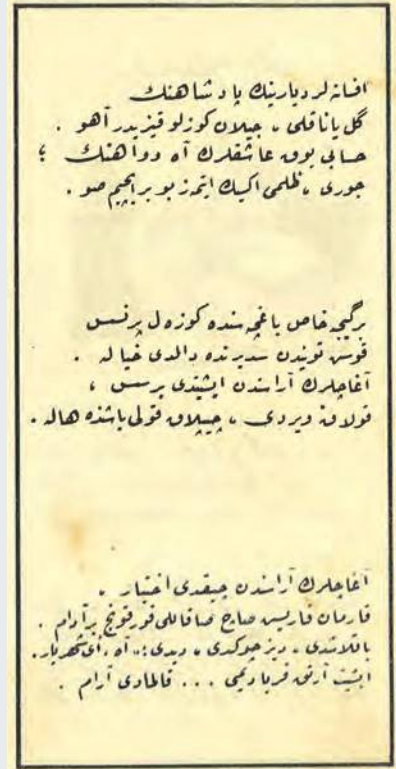 افسانه لر ديارينك پادشاهنك
گل ياناقلى ، جيلان كوزلو قيزيدر آهو .
حسابى يوق عاشقلرك آه و وآهنك ؛
جورى ، ظلمى اكسيك ايتمز بو بر ايچيم صو .
بر گيجه خاص باغچه سنده كوزه ل پرنسس
قوش توى‌ندن سديرنده دالدى خياله .
آغاجلرك آراسندن ايشيتدى بر سس ،
قولاق ويردى ، چيپلاق قولى باشنده هاله .
آغاجلرك آراسندن چيقدى اختيار ،
قارمان قاريش صاچ صاقاللى قورقونج بر آدام .
ياقلاشدى ، ديز چوكدى ، ديدى : ، آه ، اى شهريار .
ايشيت آرتق فرياديمى ... قالمادى آرام .